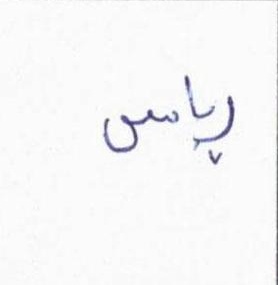 پاس